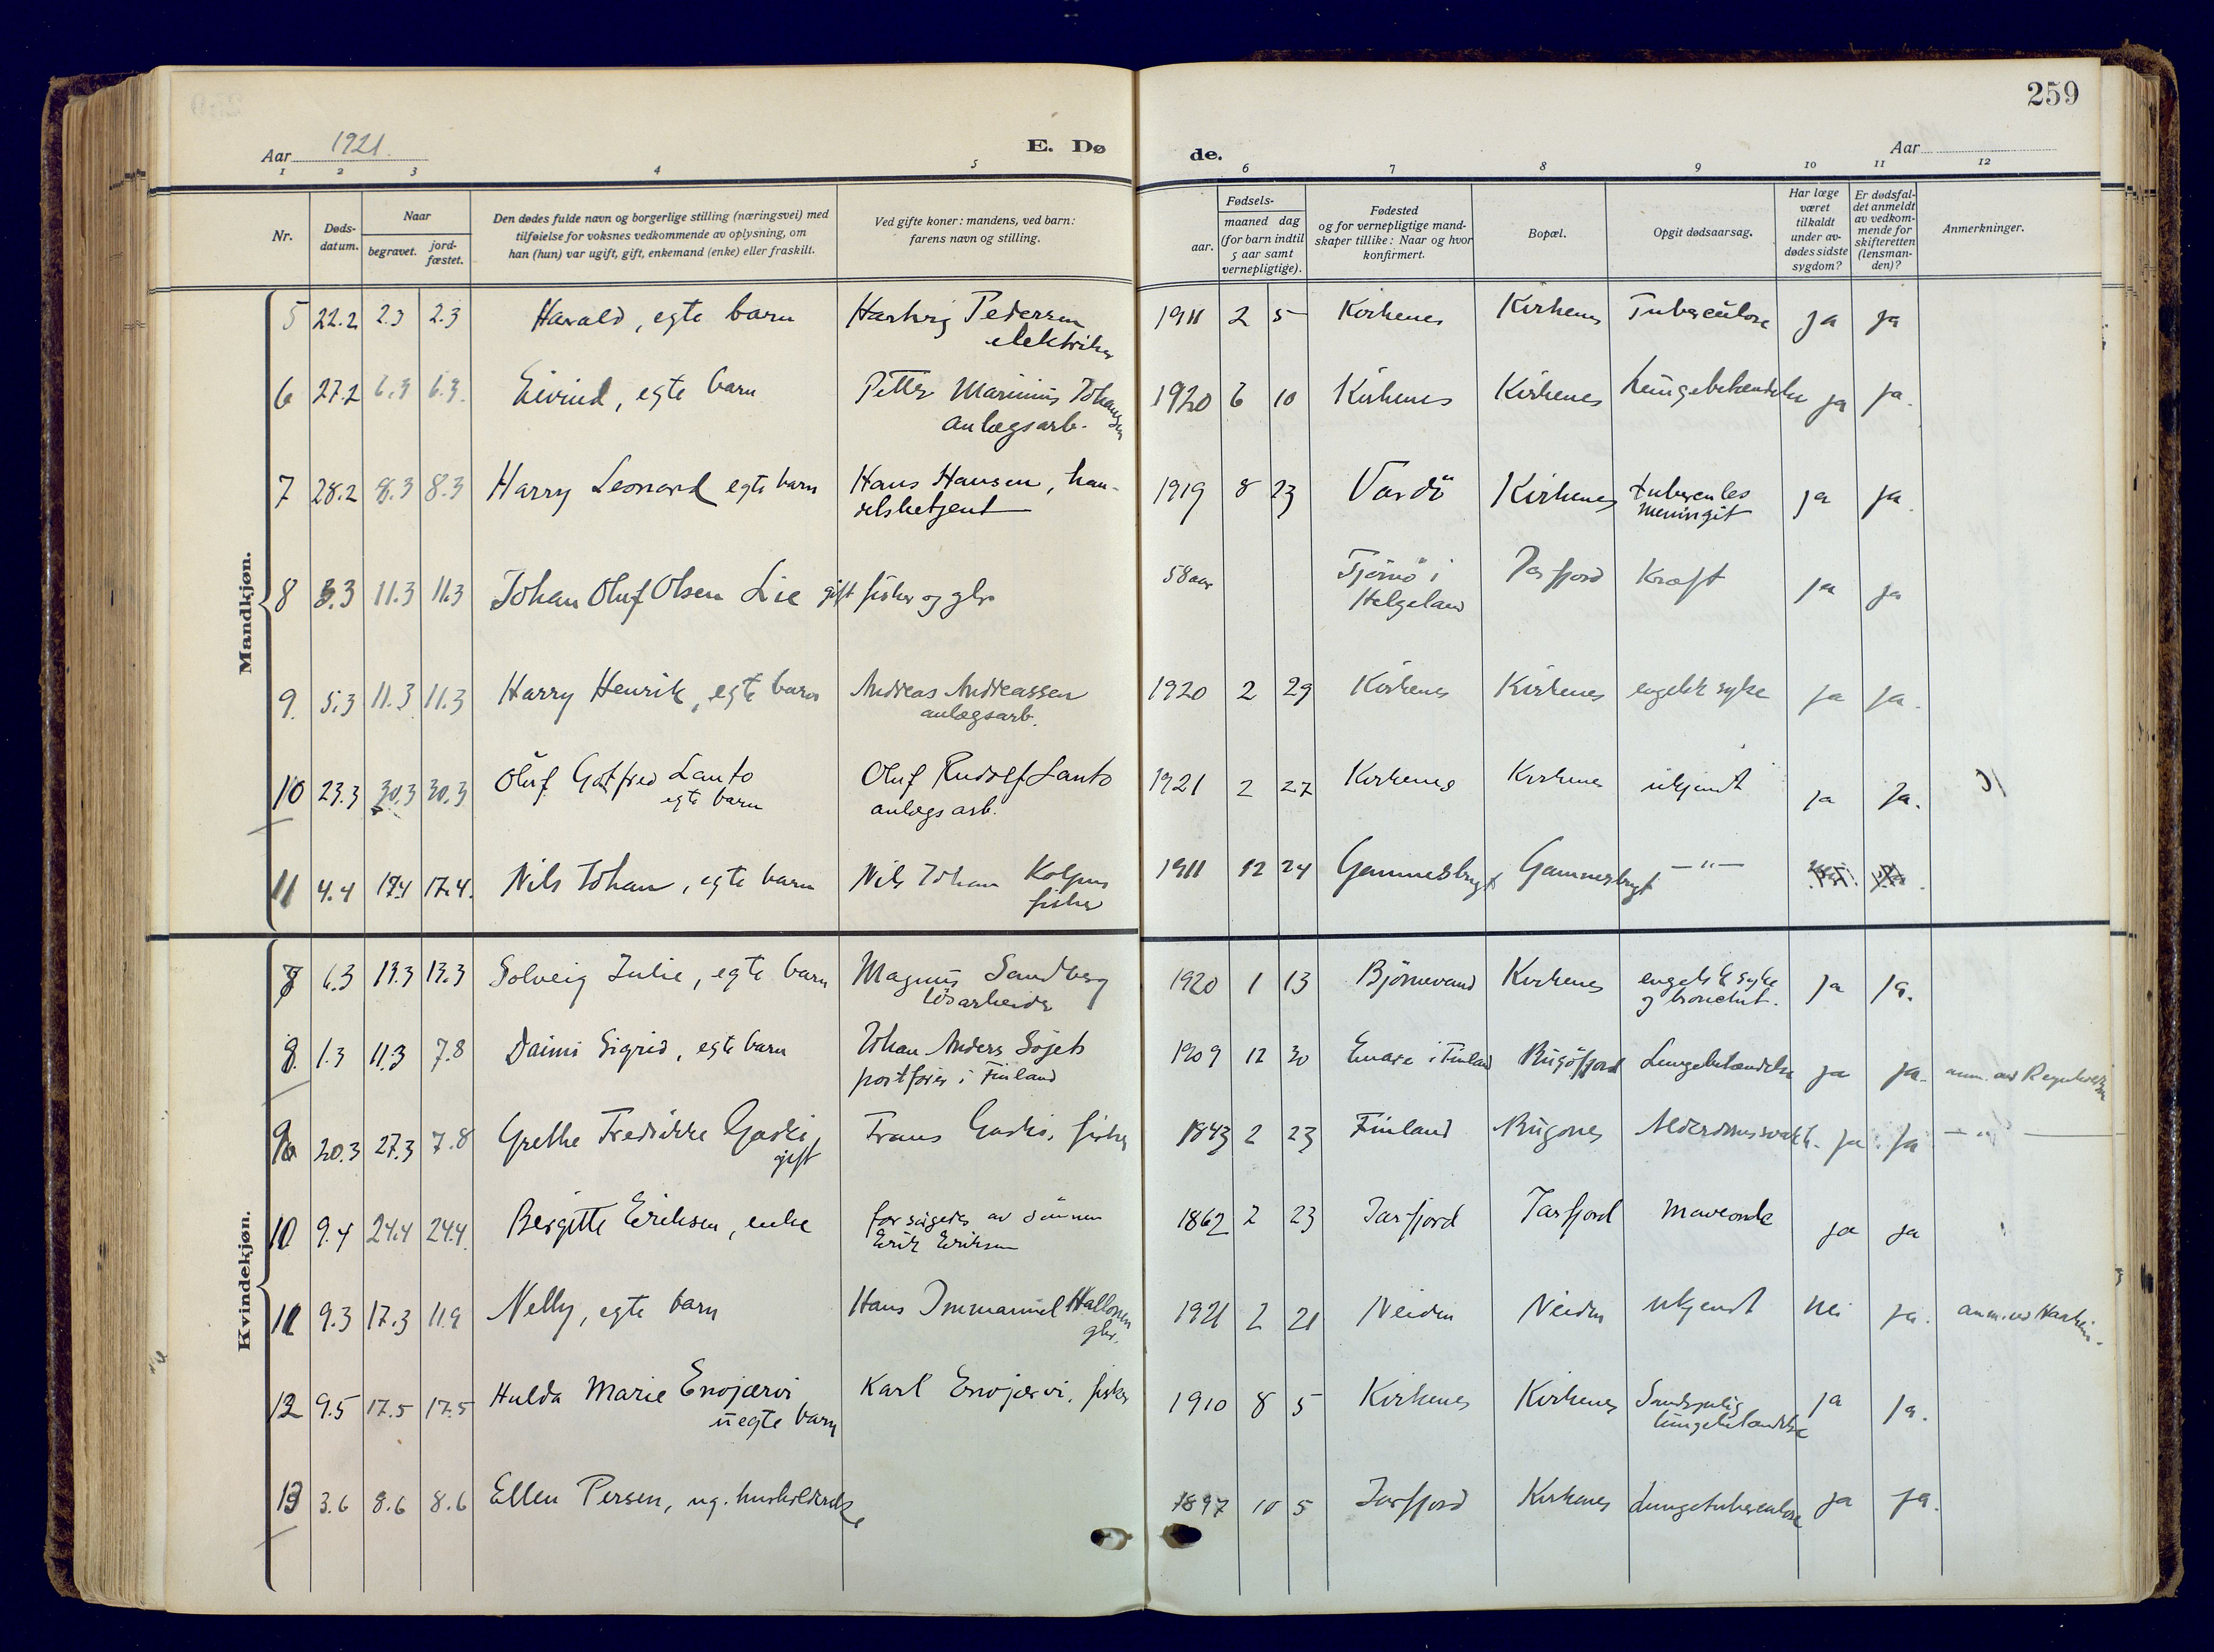 259
Aar 1921.
E. Dø de.
Aar
1 2 3 4 5 6 7 8 9 10 11 12
Nr.
Døds-
datum.
Naar
begravet.
jord-
fæstet.
Den dødes fulde navn og borgerlige stilling (næringsvei) med
tilføielse for voksnes vedkommende av oplysning, om
han (hun) var ugift, gift, enkemand (enke) eller fraskilt.
Ved gifte koner: mandens, ved barn:
farens navn og stilling.
Fødsels-
aar.
maaned dag
(for barn indtil
5 aar samt
vernepligtige).
Fødested
og for vernepligtige mand-
skaper tillike: Naar og hvor
konfirmert.
Bopæl.
Opgit dødsaarsag.
Har læge
været
tilkaldt
under av-
dødes sidste
sygdom?
Er dødsfal-
det anmeldt
av vedkom-
mende for
skifteretten
(lensman-
den)?
Anmerkninger.
Mandkjøn.
5 22.2 2.3 2.3 Harald, egte barn Hartvig Pedersen 1911 2 5 Kirkenes Kirkenes Tuberculose ja ja
elektriker
6 27.2 6.3 6.3. Eivind, egte barn Petter Marinius Johansen 1920 6 10 Kirkenes Kirkenes Lungebetændelse ja ja.
anlægsarb.
7 28.2 8.3 8.3 Harry Leonard egte barn Hans Hansen, han- 1919 8 23 Vardö Kirkenes tuberculøs ja ja.
delsbetjent meningit
8 3.3 11.3 11.3 Johan Oluf Olsen Lie gift fisker og gbr 58 aar Tjømø i Jarfjord Kræft ja ja
Helgeland
9. 5.3 11.3 11.3 Harry Henrik, egte barn Andreas Andreassen 1920 2 29 Kirkenes Kirkenes engelsk syke ja ja.
anlægsarb.
10 23.3 30.3 30.3 Oluf Gotfred Lanto Oluf Rudolf Lanto 1921 2 27 Kirkenes Kirkenes ukjendt ja ja.
egte barn anlægsarb.
11 4.4 17.4 17.4. Nils Johan, egte barn Nils Johan 1911 12 24 Gamnesbugt Gamnesbugt — " —
fisker
Kvindekjøn.
7 6.3 13.3 13.3 Solveig Julie, egte barn Magnus Sandberg 1920 1 13 Bjørnevand Kirkenes engelsk syke ja ja.
løsarbeider og bronchit.
8. 1.3 11.3 7.8 Daimi Sigrid, egte barn Johan Anders 1909 12 30 Enare i Finland Bugöfjord Lungebetændelse ja ja. anm. av
postfører i Finland
9 20.3 27.3 7.8 Grethe Fredrikke Gaski, Frans Gaski, fisker 1843 2 23 Finland Bugønes Alderdomssvakh. ja ja — " —
gift
10 9.4 24.4 24.4. Bergitte Eriksen, enke forsørgedes av sønnen 1862 2 23 Jarfjord Jarfjord Maveonde ja ja
Erik Eriksen
11 9.3 17.3 11.9 Nelly, egte barn Hans Immanuel Hallonen 1921 2 21 Neiden Neiden ukjendt nei ja. anm. av
gbr.
12 9.5 17.5 17.5 Hulda Marie Enojærvi Karl Enojærvi, fisker 1910 8 5 Kirkenes Kirkenes ja ja.
uegte barn lungebetændelse
13 3.6 8.6 8.6 Ellen Persen, ug. husholderske 1897 10 5 Jarfjord Kirkenes Lungetuberculose ja ja.